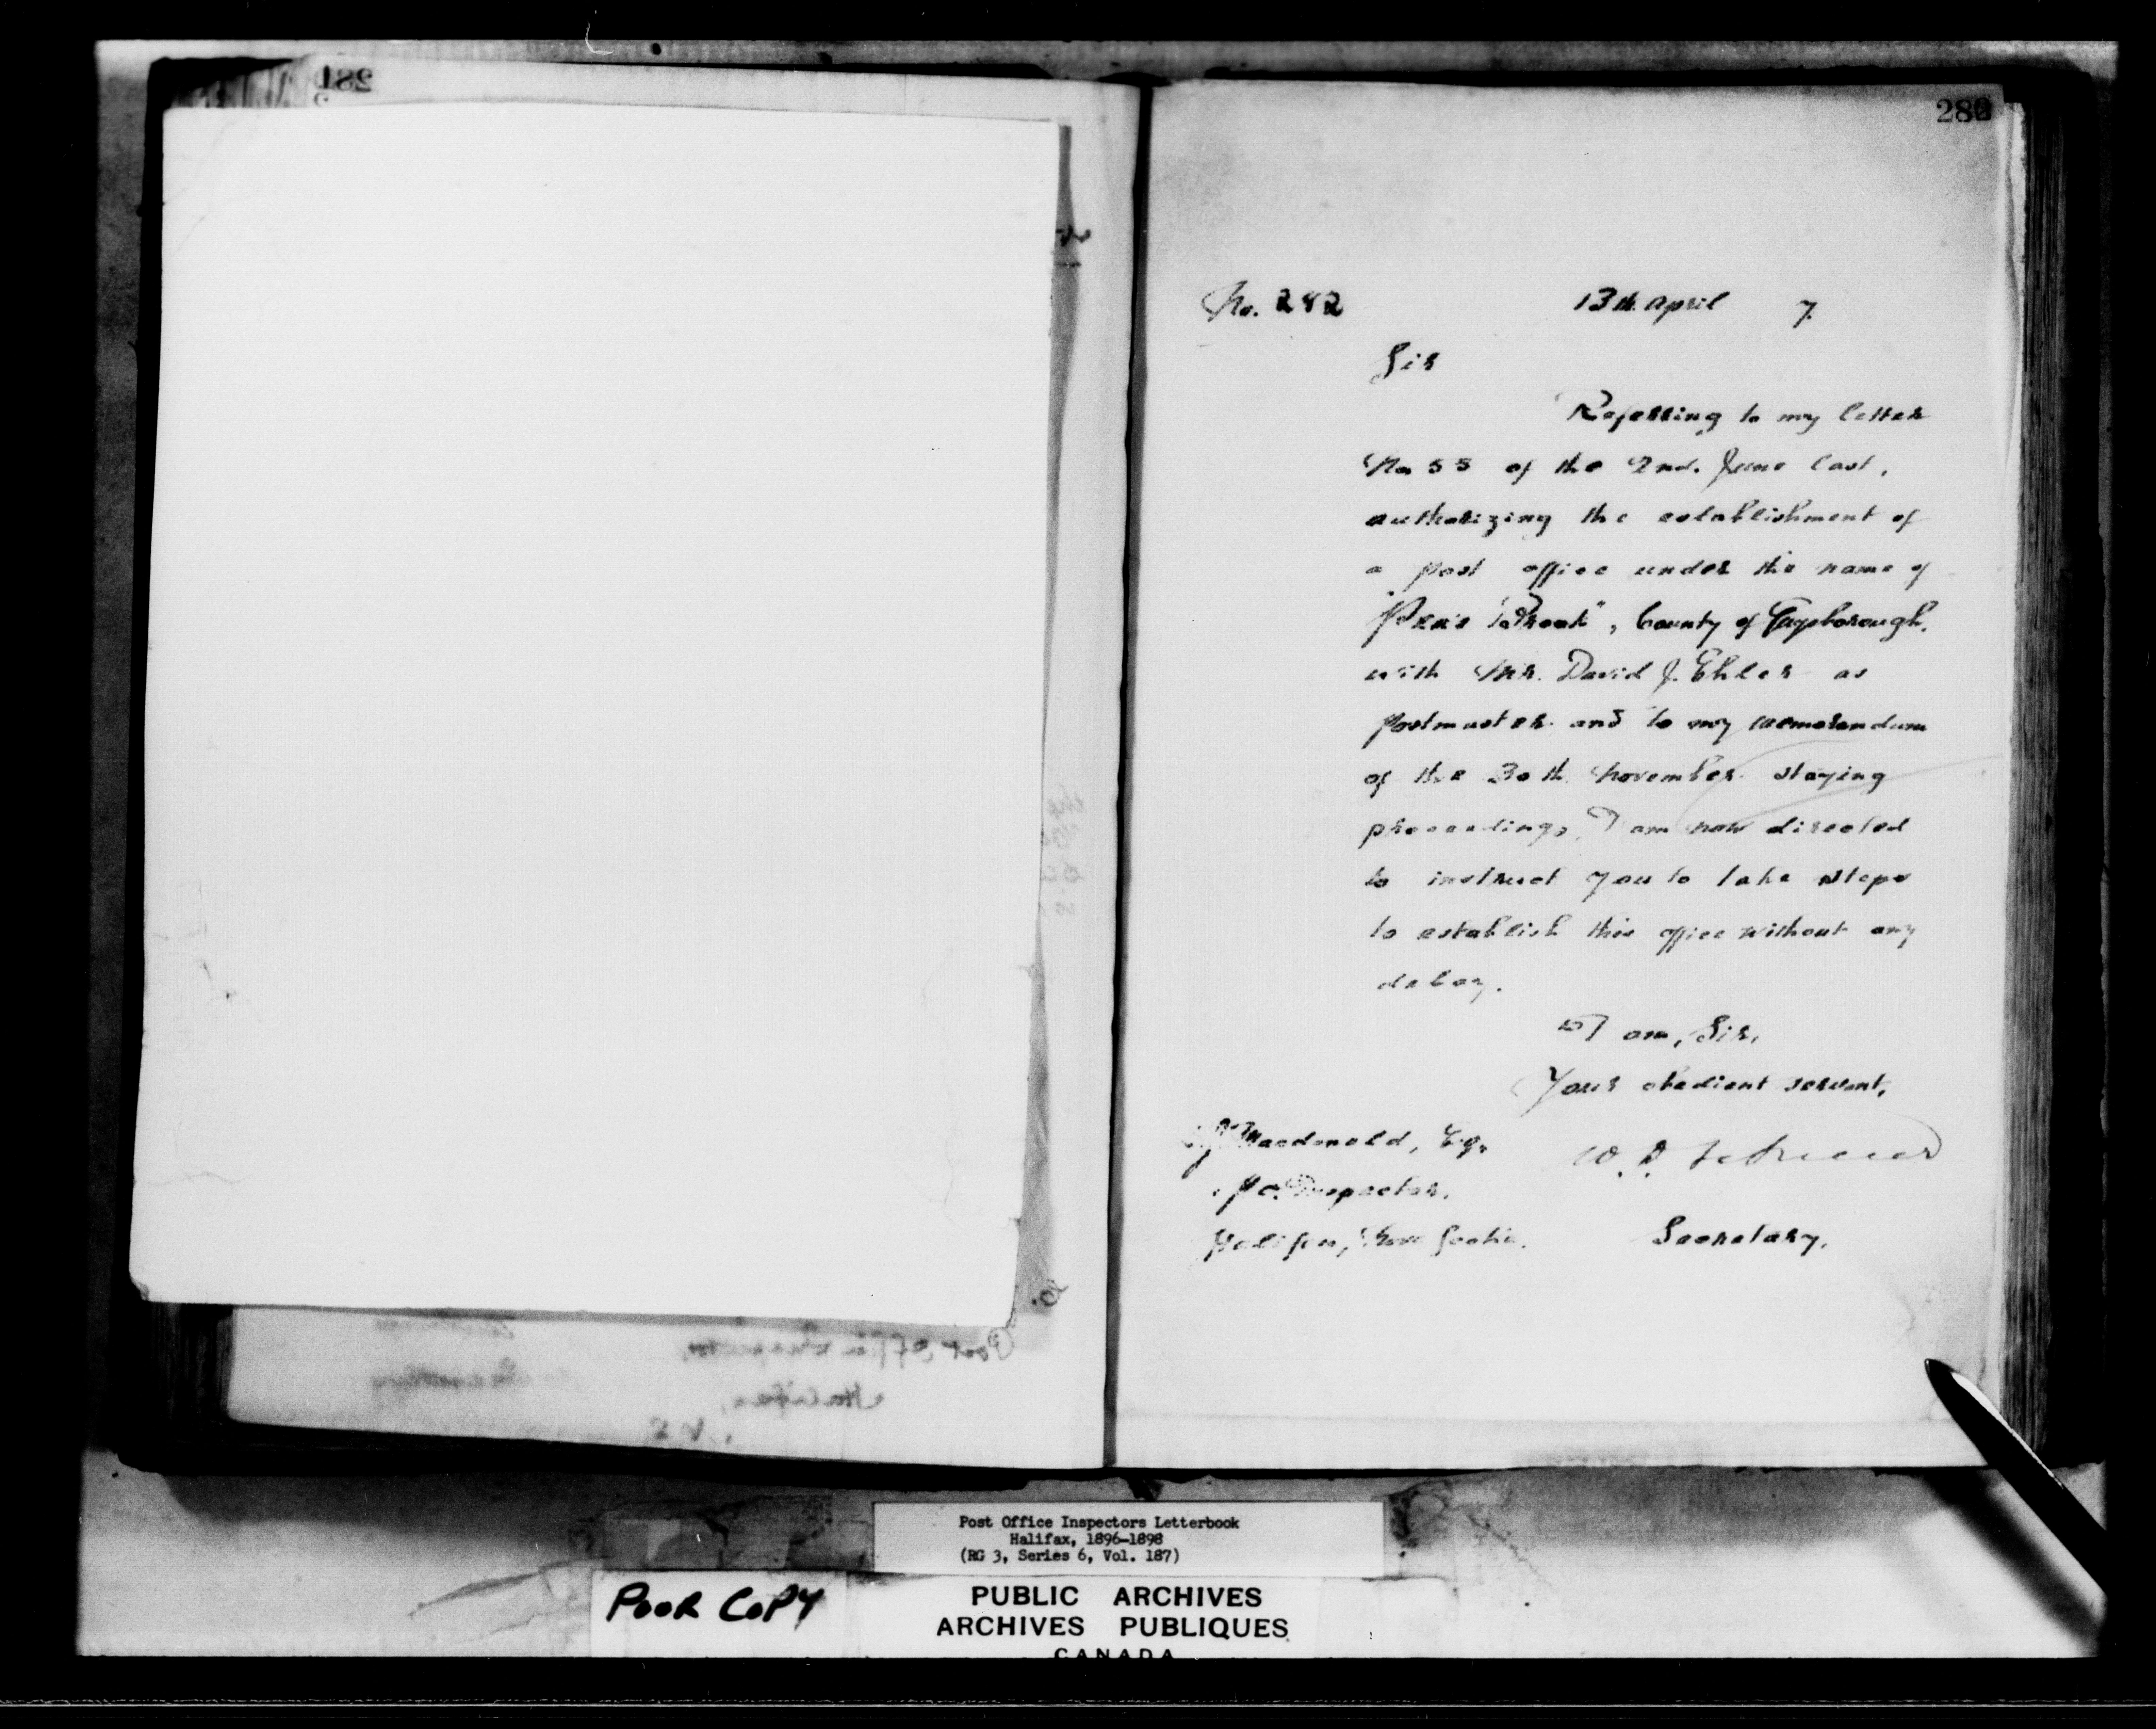 282
No. 282 13th April 7.
Sir
Referring to my letter
No 55 of the 2nd. June last,
authorizing the establishment of
a post office under the name of
Brook", County of Guysborough,
with Mr. David J. Ehler as
postmaster and to my memorandum
of the 30th November staying
proceedings, I am now directed
to instruct you to take steps
to establish this office without any
delay.
I am, Sir,
Your obedient servant,
Macdonald, Esq.
P.O. Inspector.
Halifax, Nova Scotia.
Secretary.
Post Office Inspector,
Halifax,
N.S.
Post Office Inspectors Letterbook
Halifax, 1896-1898
(RG 3, Series 6, Vol. 187)
POOR COPY
PUBLIC ARCHIVES
ARCHIVES PUBLIQUES
CANADA